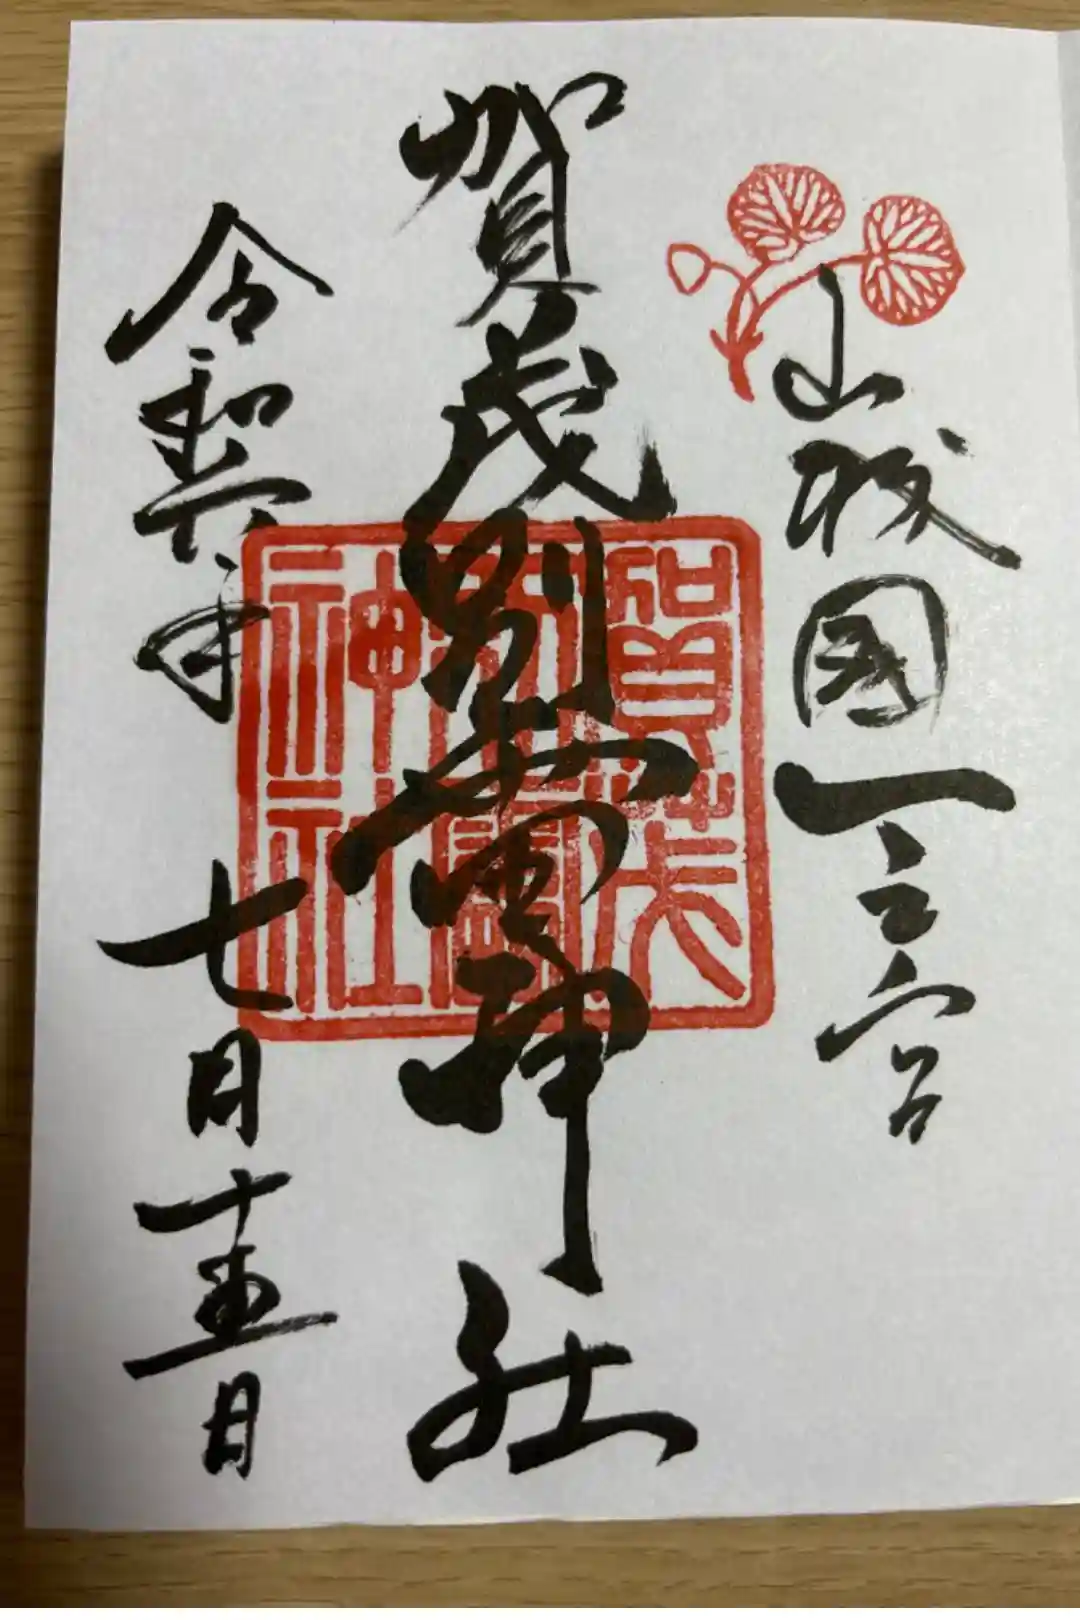 山城國一之宮
賀茂別雷神社
令和六年 七月十五日
賀茂
別雷
神社